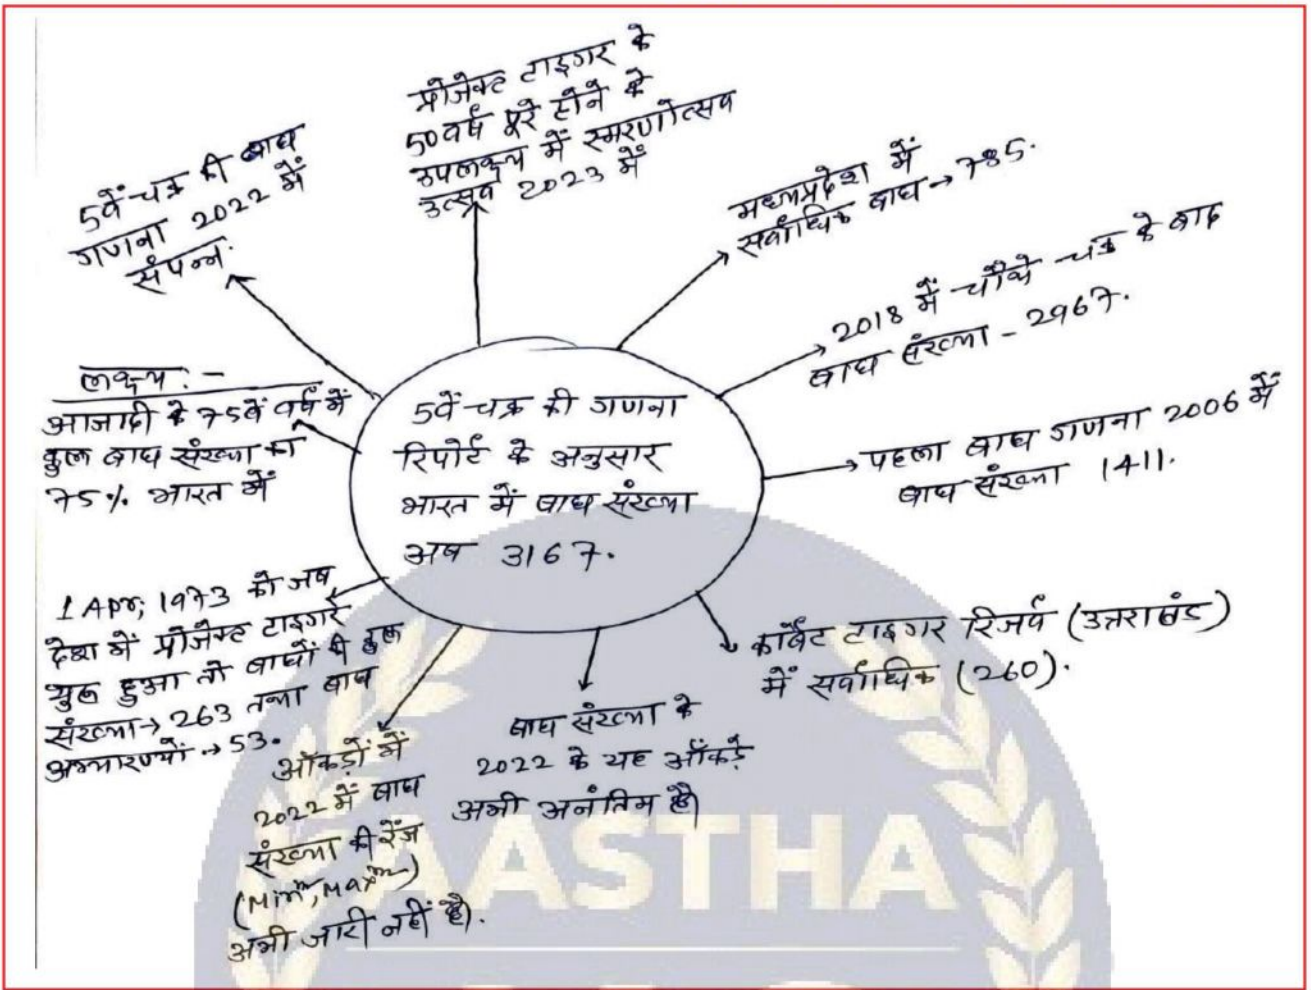 5वें चक्र की गणना
रिपोर्ट के अनुसार
भारत में बाघ संख्या
अब 3167.
5वें चक्र की बाघ
गणना 2022 में
संपन्न.
प्रोजेक्ट टाइगर के
50 वर्ष पूरे होने के
उपलक्ष्य में स्मरणोत्सव
उत्सव 2023 में
मध्यप्रदेश में
सर्वाधिक बाघ → 785.
2018 में चौथे चक्र के बाद
बाघ संख्या - 2967.
पहला बाघ गणना 2006 में
बाघ संख्या 1411.
कार्बेट टाइगर रिजर्व (उत्तराखंड)
में सर्वाधिक (260).
बाघ संख्या के
2022 के यह आँकड़े
अभी अनंतिम है।
आँकड़ों में
2022 में बाघ
संख्या की रेंज
(Minᵐ, Maxᵐ)
अभी जारी नहीं है.
1 Apr, 1973 को जब
देश में प्रोजेक्ट टाइगर
शुरू हुआ तो बाघों की कुल
संख्या → 263 तथा बाघ
अभ्यारण्यों → 53.
लक्ष्य : -
आजादी के 75वें वर्ष में
कुल बाघ संख्या का
75% भारत में
AASTHA